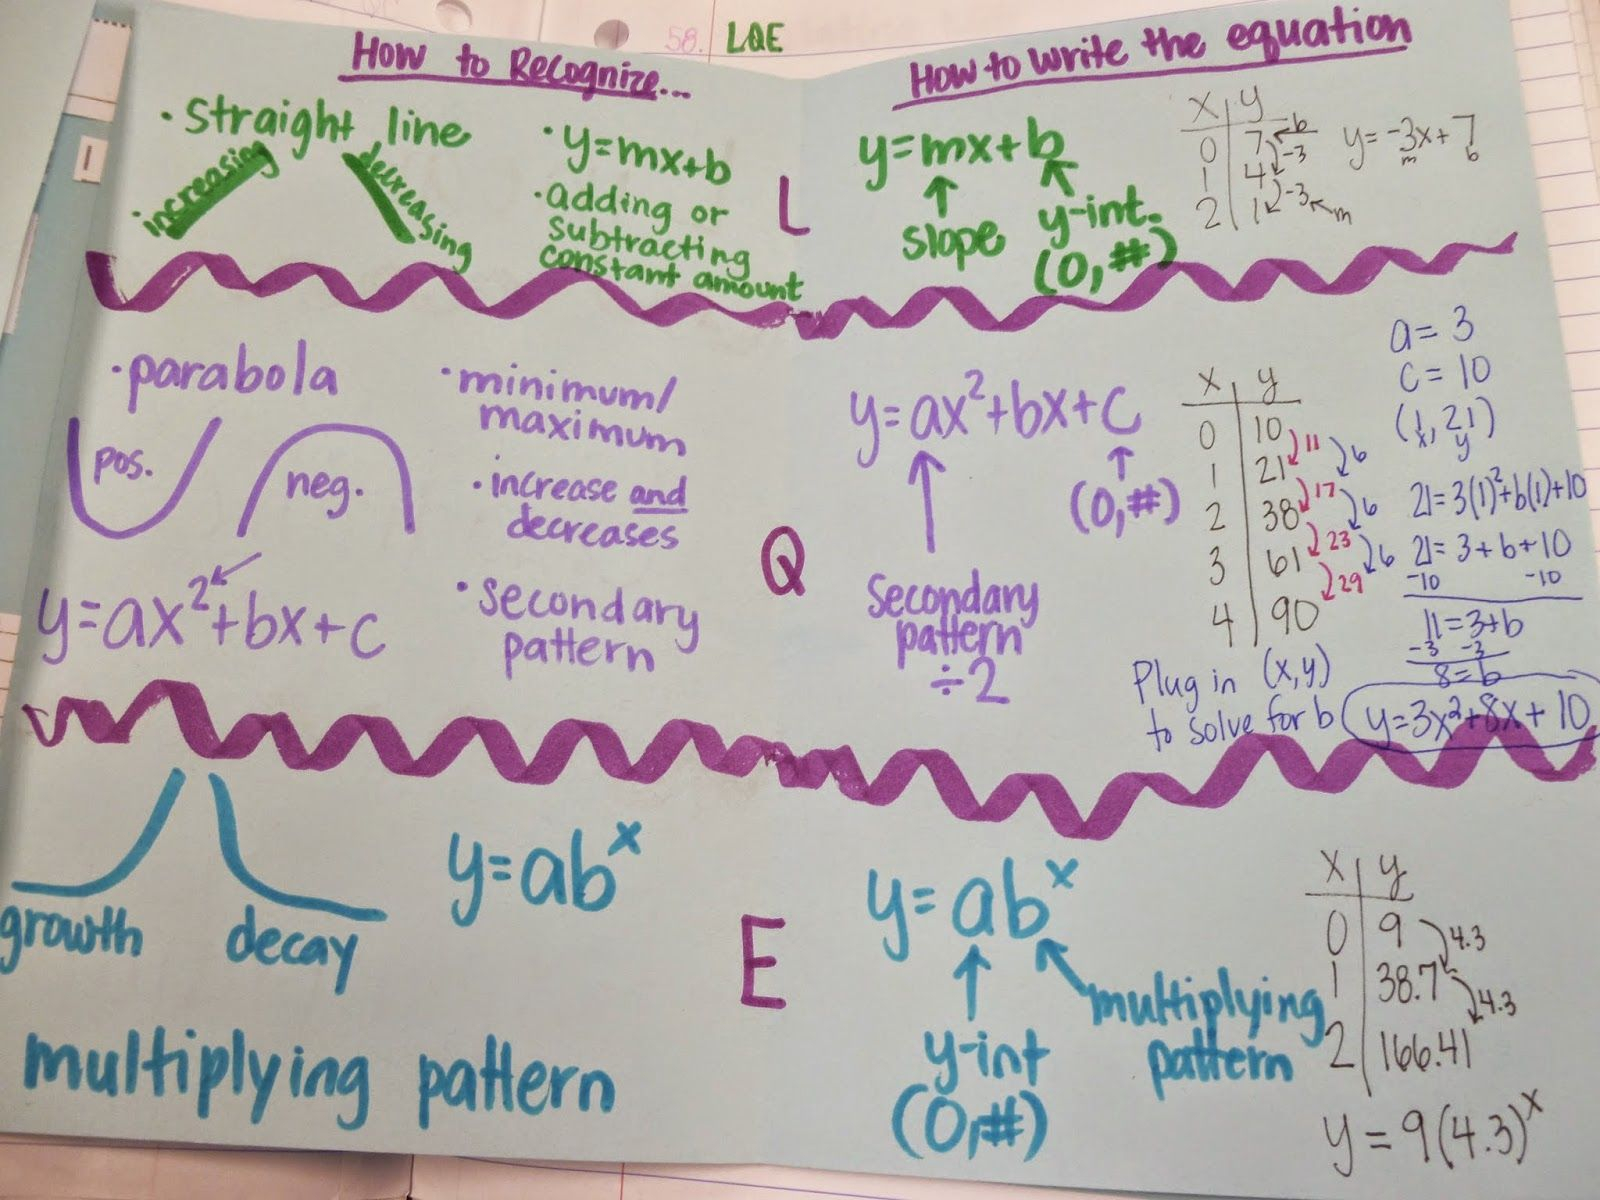 58. LQE
How to Recognize...
• straight line
increasing
decreasing
• y=mx+b
• adding or
subtracting
constant amount
L
How to write the equation
y=mx+b
slope
y-int.
(0,#)
x y
0 7 b
-3
1 4
-3 m
2 1
y=-3x+7
m b
• parabola
pos.
neg.
y=ax²+bx+c
• minimum/
maximum
• increase and
decreases
• secondary
pattern
Q
y=ax²+bx+c
(0,#)
Secondary
pattern
÷2
x y
0 10
11
1 21 6
17
2 38 6
23
3 61 6
29
4 90
Plug in (x,y)
to solve for b
a=3
c=10
(1,21)
x y
21=3(1)²+b(1)+10
21=3+b+10
-10 -10
11=3+b
-3 -3
8=b
y=3x²+8x+10
growth
decay
y=abˣ
multiplying pattern
E
y=abˣ
y-int
(0,#)
multiplying
pattern
x y
0 9
4.3
1 38.7
4.3
2 166.41
y=9(4.3)ˣ